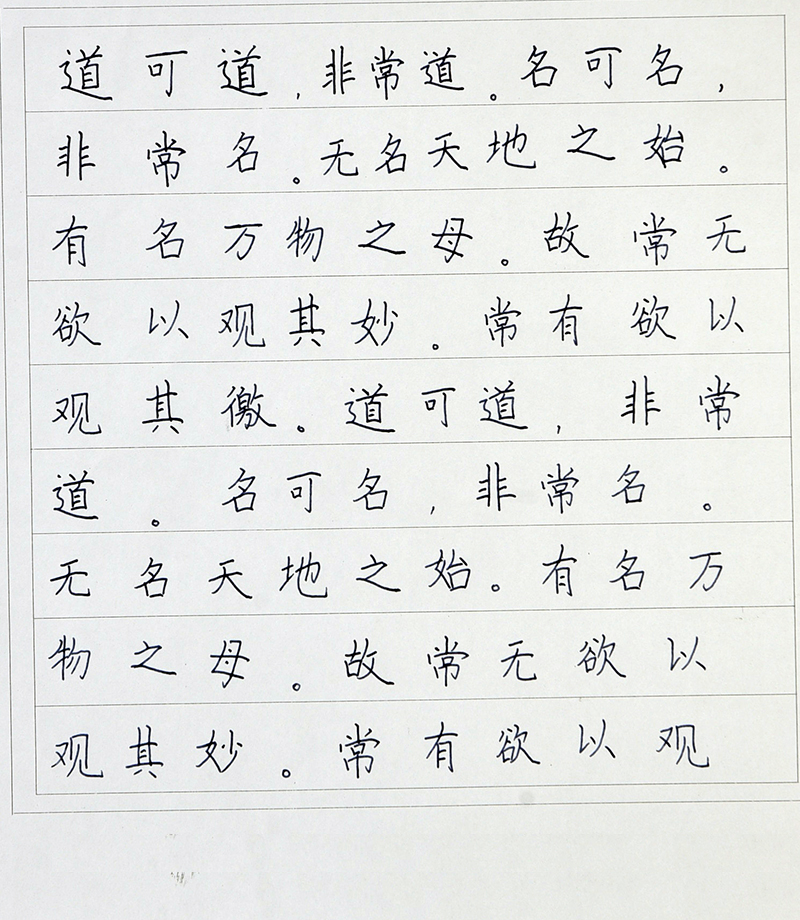 道可道，非常道。名可名，
非常名。无名天地之始。
有名万物之母。故常无
欲以观其妙。常有欲以
观其徼。道可道，非常
道。名可名，非常名。
无名天地之始。有名万
物之母。故常无欲以
观其妙。常有欲以观